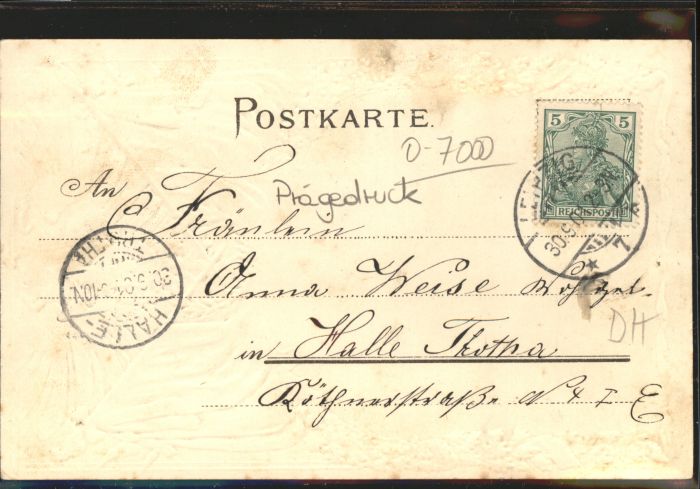 POSTKARTE.
0-7000
5 5
REICHSPOST
LEIPZIG
7
30.9.0
Prägedruck
An Fräulein
Anna Weise
in Halle Trotha
Köthnerstraße N 4 I E
DH
HALLE
TROTHA
30.9.01